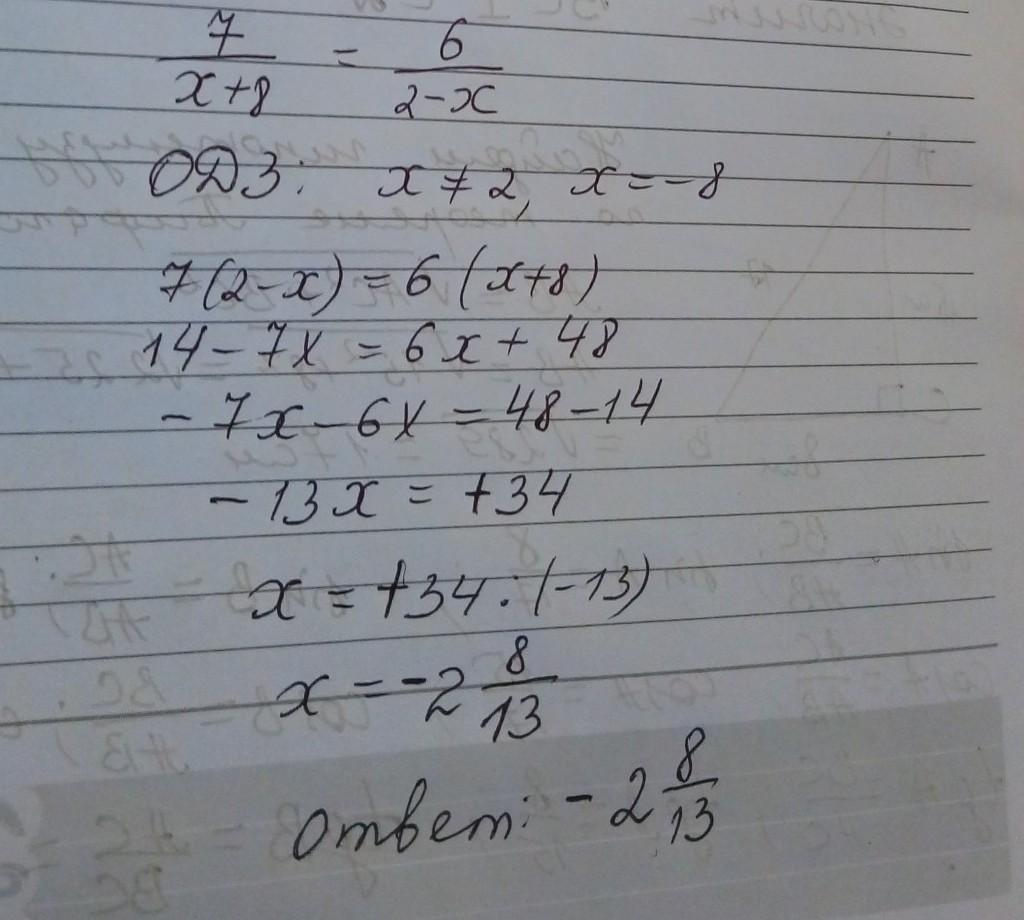 7/(x+8) = 6/(2-x)
ОДЗ: x ≠ 2, x = -8
7(2-x) = 6(x+8)
14 - 7x = 6x + 48
-7x - 6x = 48 - 14
-13x = +34
x = +34 : (-13)
x = -2 8/13
ответ: -2 8/13